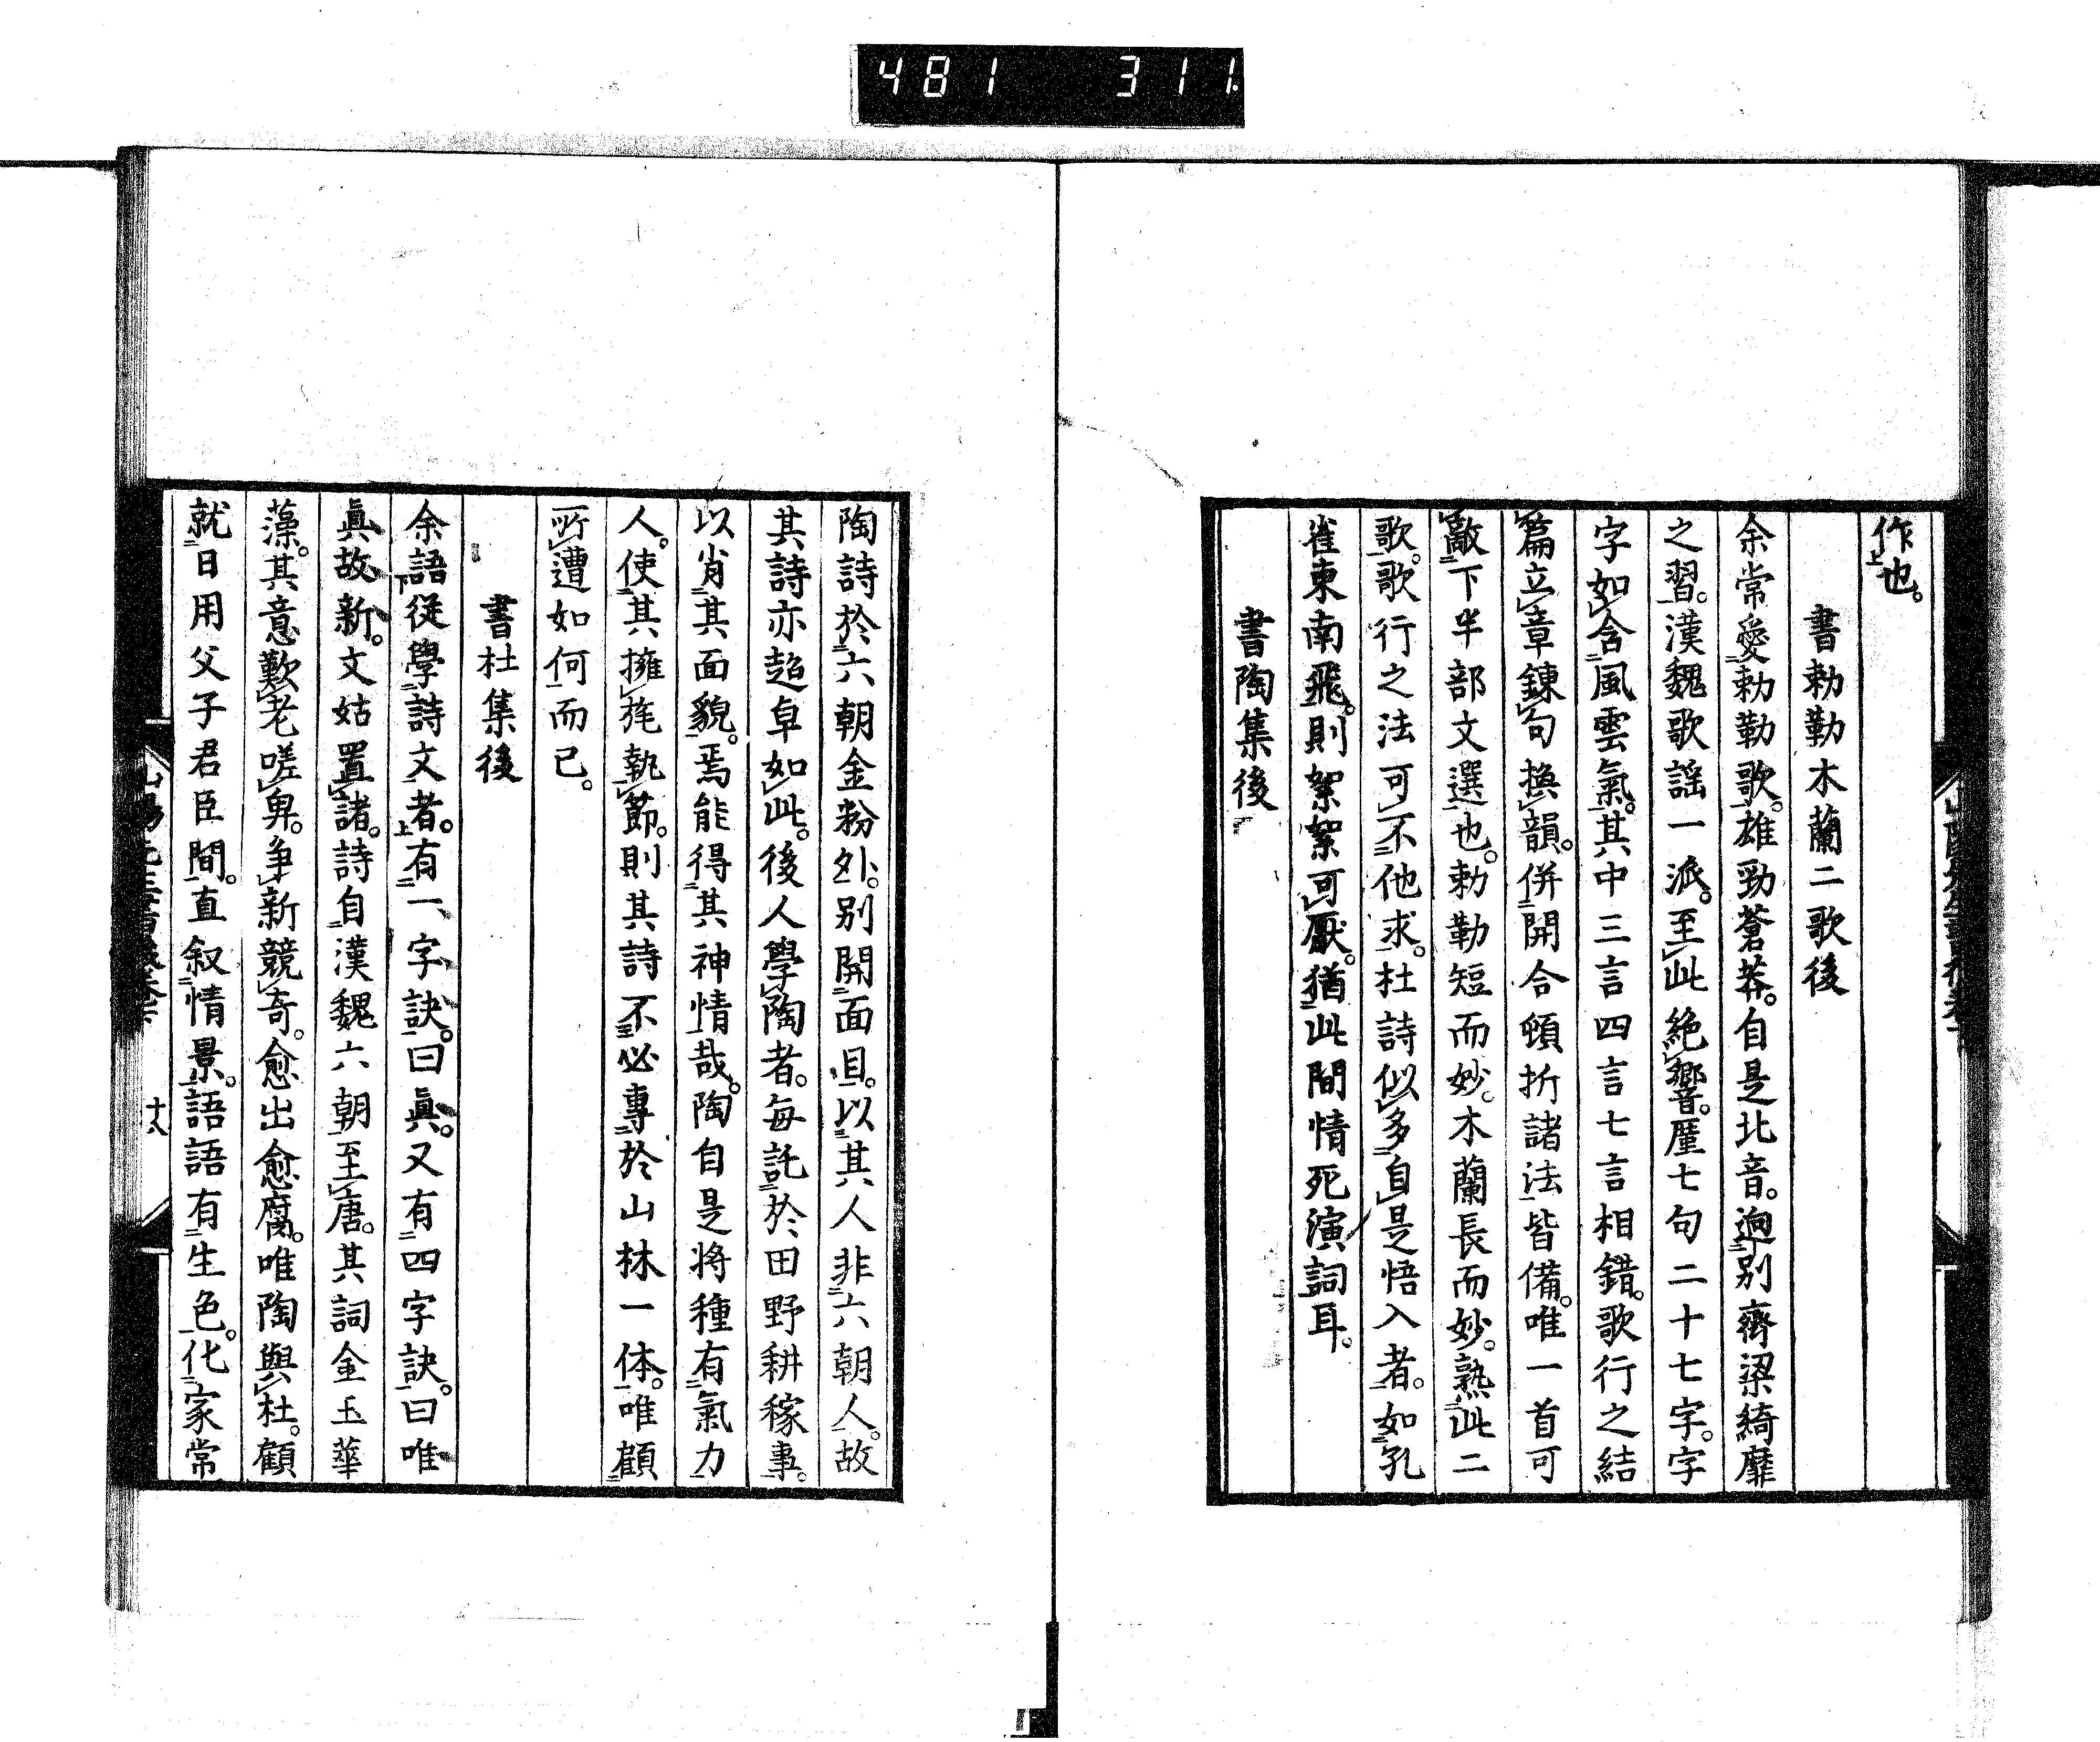 481 311
作也。
書勅勒木蘭二歌後
余常愛勅勒歌。雄勁蒼莽。自是北音。迥別齊梁綺靡
之習。漢魏歌謡一派。至此絶響。厪七句二十七字。字
字如含風雲氣。其中三言四言七言相錯。歌行之結
篇立章錬句換韻。併開合頓折諸法皆備。唯一首可
敵下半部文選也。勅勒短而妙。木蘭長而妙。熟此二
歌。歌行之法可不他求。杜詩似多自是悟入者。如孔
雀東南飛。則絮絮可厭。猶此間情死演詞耳。
書陶集後
陶詩於六朝金粉外。別開面目。以其人非六朝人。故
其詩亦超卓如此。後人學陶者。毎託於田野耕稼事。
以肖其面貌。焉能得其神情哉。陶自是将種有氣力
人。使其擁旄執節。則其詩不必專於山林一体。唯顧
所遭如何而已。
書杜集後
余語從學詩文者。有一字訣。曰眞。又有四字訣。曰唯
眞故新。文姑置諸。詩自漢魏六朝至唐。其詞金玉華
藻。其意歎老嗟卑。争新競奇。愈出愈腐。唯陶與杜。顧
就日用父子君臣間。直叙情景。語語有生色。化家常